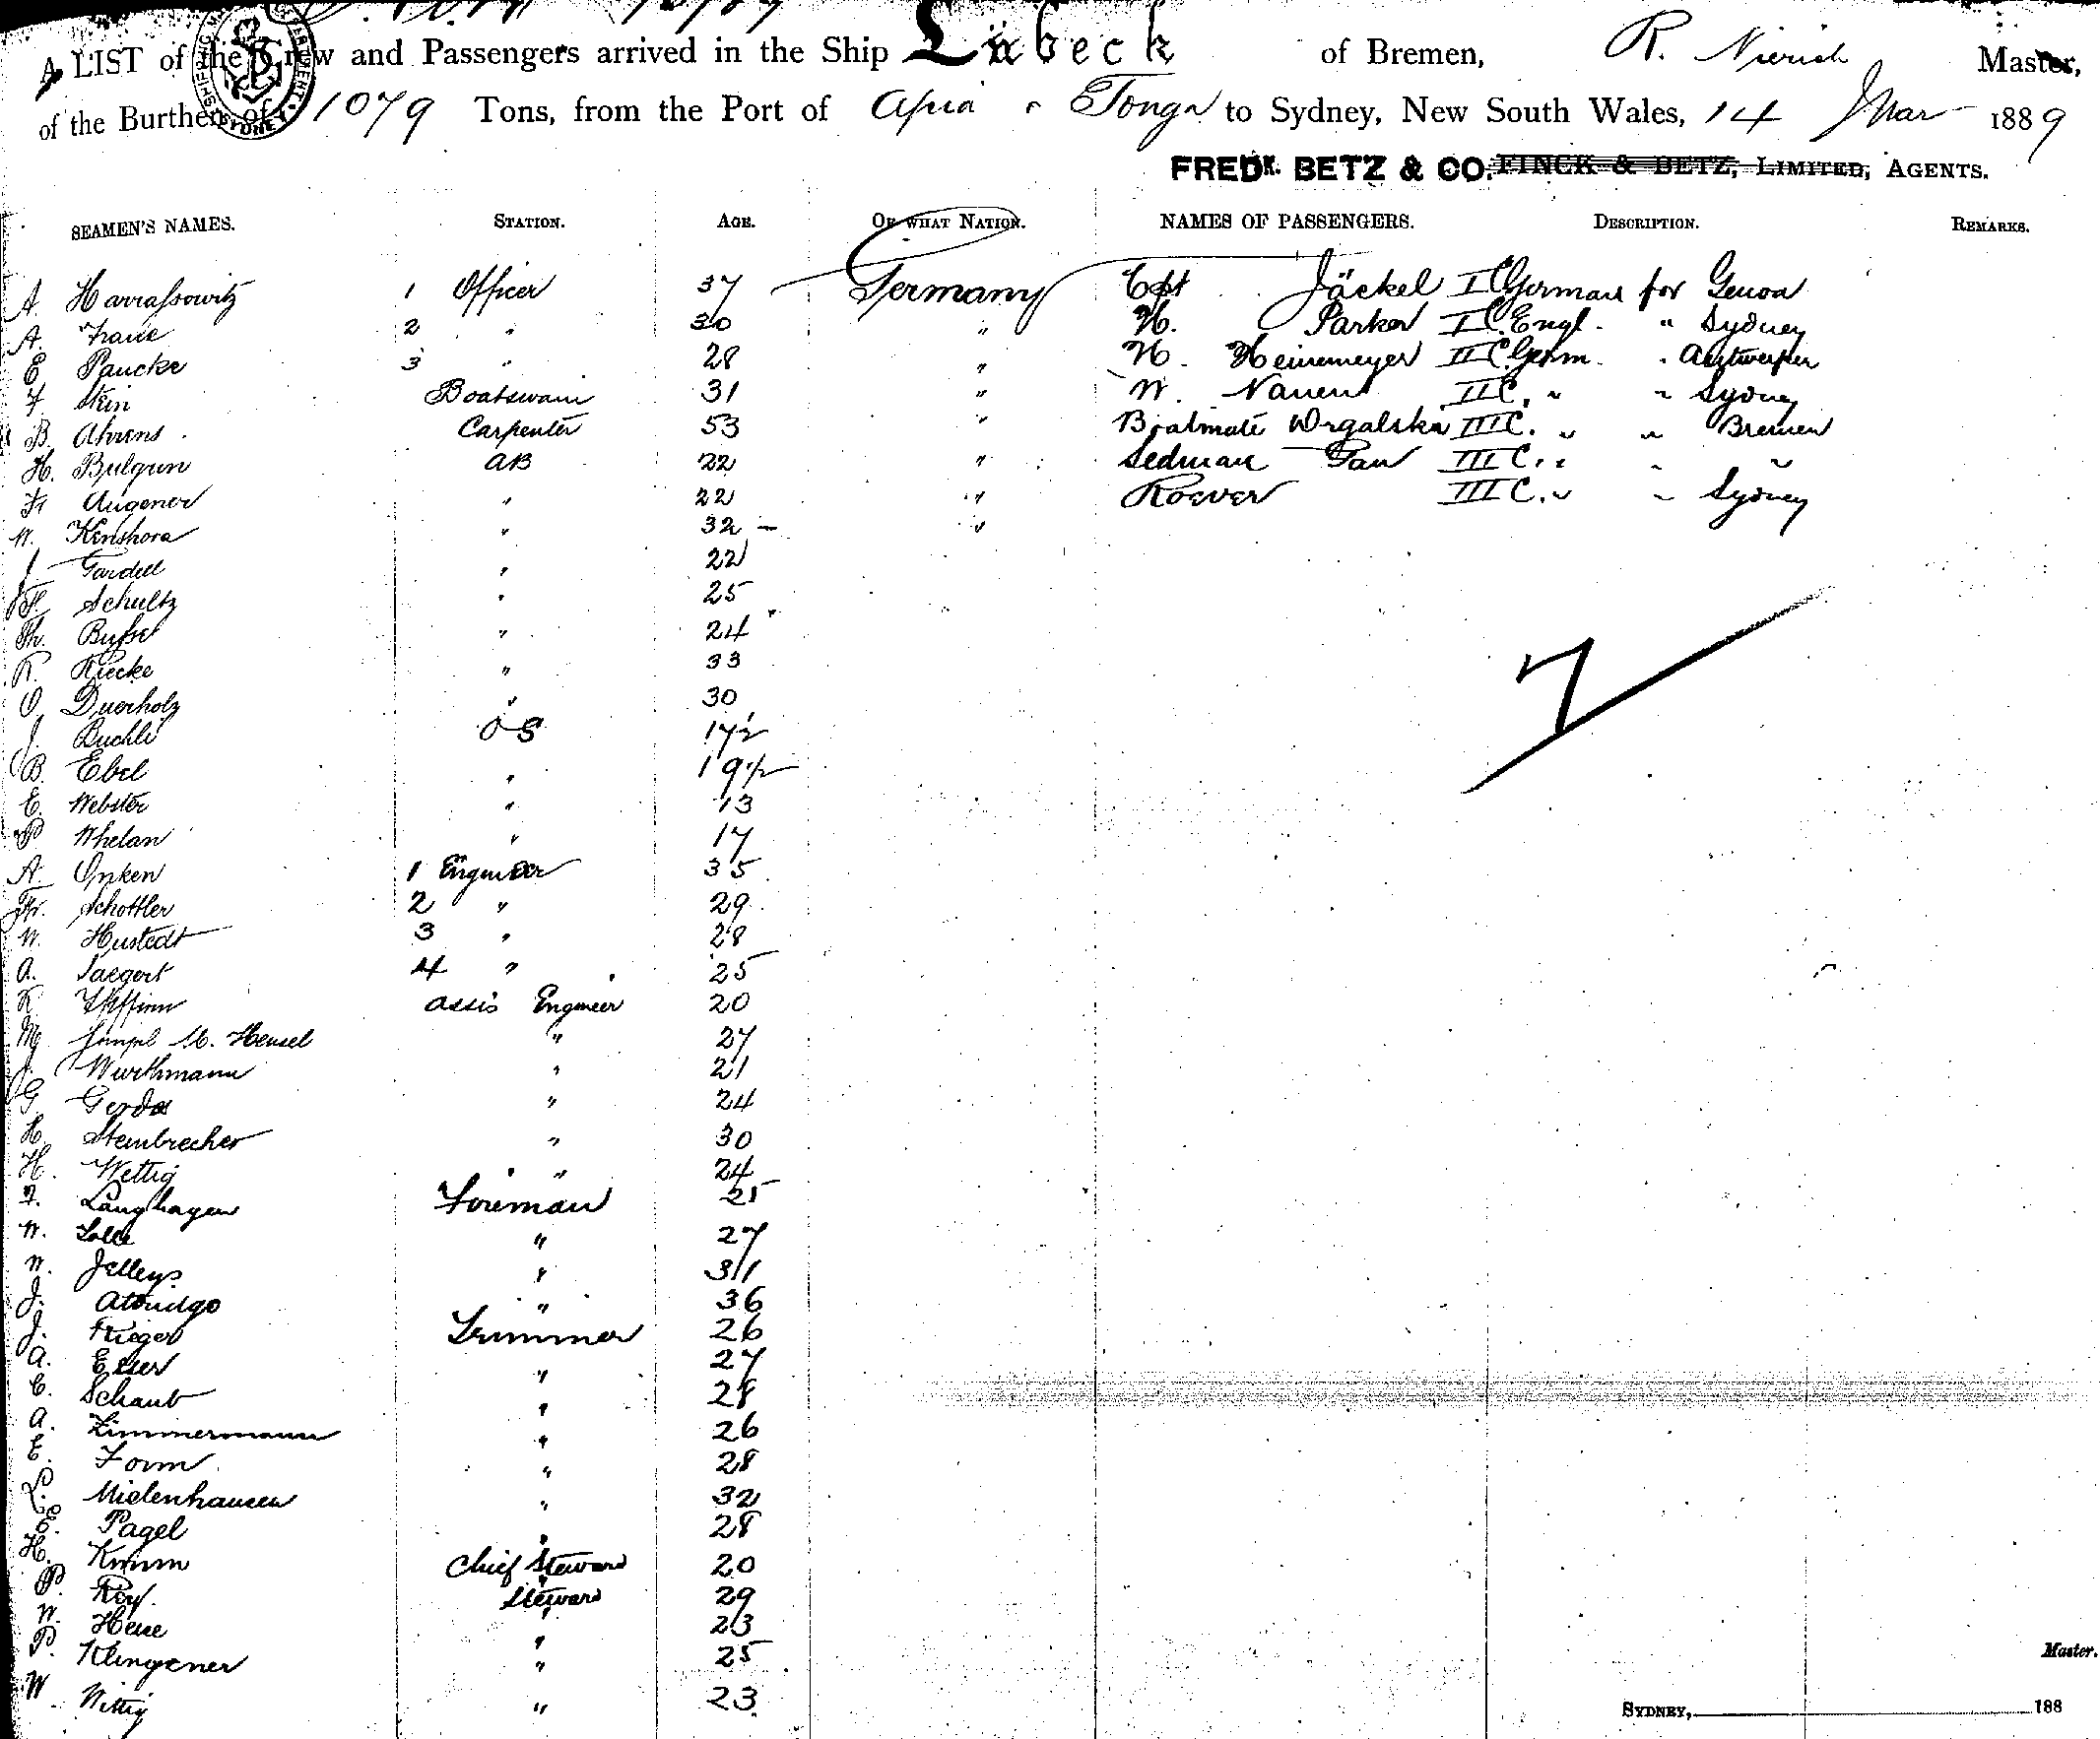 A LIST of the Crew and Passengers arrived in the Ship Lübeck of Bremen, R. Nierich Master,
of the Burthen of 1079 Tons, from the Port of Apia & Tonga to Sydney, New South Wales, 14 Mar 1889
FREDK. BETZ & CO. FINCK & BETZ, LIMITED, AGENTS.
SEAMEN'S NAMES. STATION. AGE. OF WHAT NATION. NAMES OF PASSENGERS. DESCRIPTION. REMARKS.
A. Harrassowitz 1 Officer 37 Germany Cpt Jäckel I C German for Genoa
A. 2 " 30 " H. Parker I C. Engl. " Sydney
E Paucke 3 " 28 " H. Heinemeyer II C. Germ. " Antwerpen
F Stein Boatswain 31 " W. Nauen II C. " " Sydney
B. Ahrens Carpenter 53 " III C. " " Bremen
H. Bulgrin AB 22 " III C. " " "
Fr Augener " 22 " Roever III C. " " Sydney
W. Kinshora " 32 - "
J Tardell " 22
H. Schultz " 25
Th. Bysset " 24
R. Riecke " 33
O. Duerholz " 30
J. Buchli OS 17½
B. Ebel " 19½
E. Webster " 13
P Whelan " 17
A. Onken 1 Engineer 35
Fr. Schottler 2 " 29
W. Hustedt 3 " 28
A. Jaegert 4 " 25
K. Assis Engineer 20
M. M. Hensel " 27
J. Wurthmann " 21
G. Gerdes " 24
H. Steinbrecher " 30
H. Wettig " 24
F. Langhagen Foreman 25
W. " 27
W. Jelleys " 31
J. Atbridge " 36
J. Rieger Trimmer 26
A. Esser " 27
C. Schaub " 28
A. Zimmermann " 26
E. Form " 28
L. Mielenhausen " 32
E. Pagel " 28
H. Kmum Chief Steward 20
P. Roy. Steward 29
W. Hene " 23
P. Klingener " 25
W Wittig " 23
Master.
SYDNEY, 188